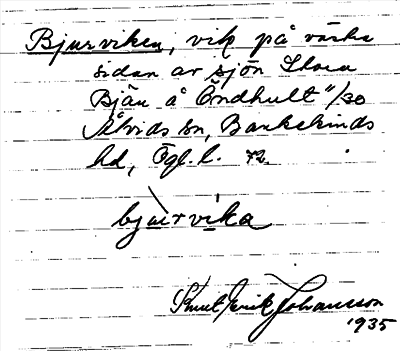 Bjurviken, vik på västra
sidan av sjön Stora
Bjän å Öndhult "/30
Åtvids sn, Bankekinds
hd, Ögl. l. 72.
bjùrvika
Knut Erik Johansson
1935